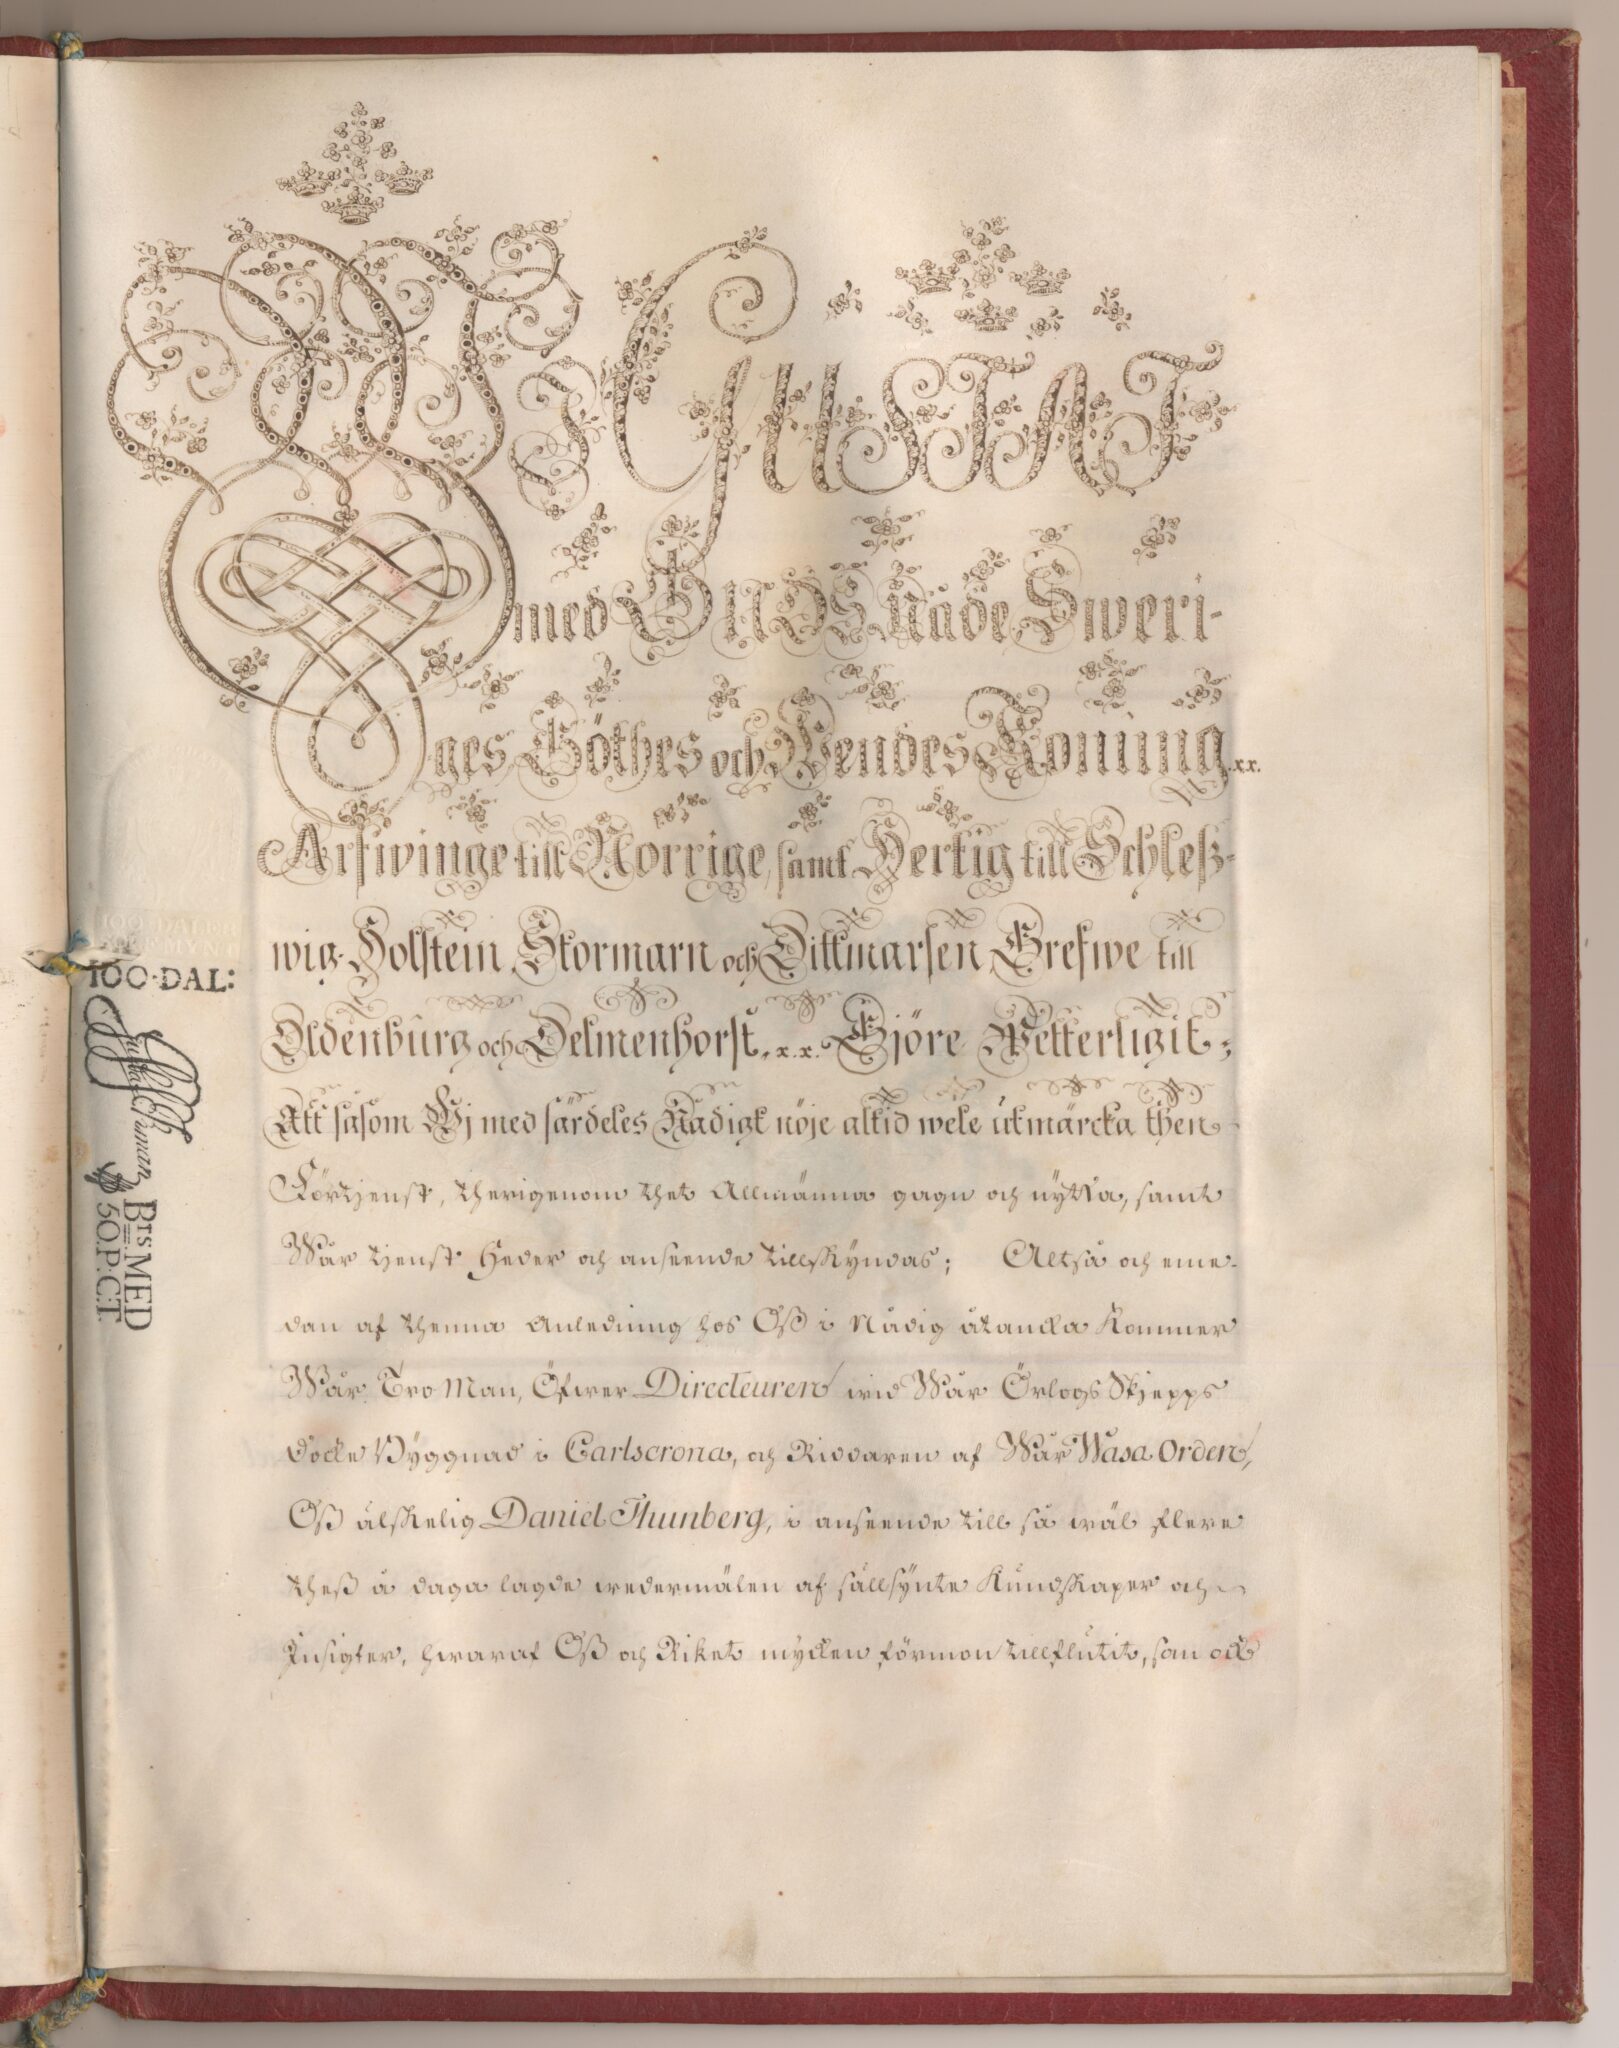 Wi GUSTAF
med GUDS Nåde Sweri-
ges Göthes och Wendes Koning x.x.
Arfwinge till Norrige, samt Hertig till Schleß-
wig Holstein, Stormarn och Dittmarsen, Grefwe till
Oldenburg och Delmenhorst, x.x. Gjöre Wetterligit;
Att såsom Wj med särdeles Nådigt nöje altid wele utmärcka then
Förtjenst, therigenom thet Allmänna gagn och nÿtta, samt
Wår tjenst Heder och anseende tillskÿndas; Altså och eme-
dan af thenna Anledning hos Oß i Nådig åtancka kommer
Wår Tro Man, Öfwer Directeuren wid Wår Örlogs Skjepps
docke Bÿggnad i Carlscrona, och Riddaren af Wår Wasa Orden,
Oß älskelig Daniel Thunberg, i anseende till så wäl flere
theß å daga lagde wedermälen af sällsÿnte Kundskaper och
Insigter, hwaraf Oß och Riket mÿcken förmon tillflutit, som ock
100 DALER
100·DAL:
Brs: MED
50.P:C:T.